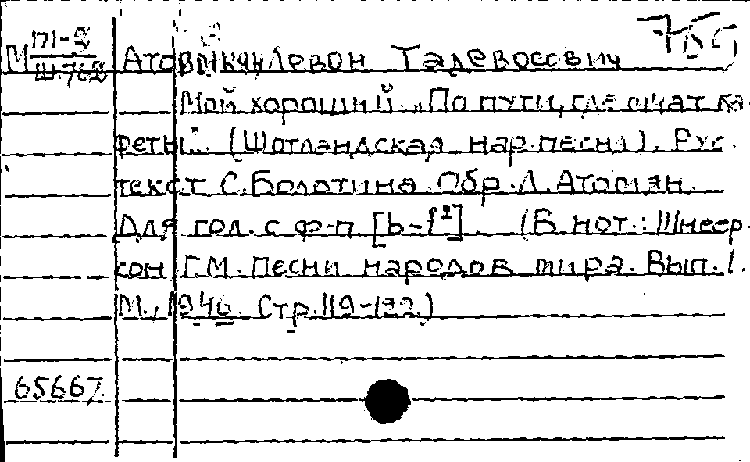 М П1-2 765
Ш-762 Атовмян Левон Тадевосович
Мой хороший. „По пути, где мчат ка-
реты". (Шотландская нар. песня). Рус.
текст С. Болотина. Обр. Л. Атовмян.
Для гол. с ф-п [b-f²]. (В нот.: Шнеер-
сон Г.М. Песни народов мира. Вып. 1.
М., 1946. Стр. 119-122.)
65667